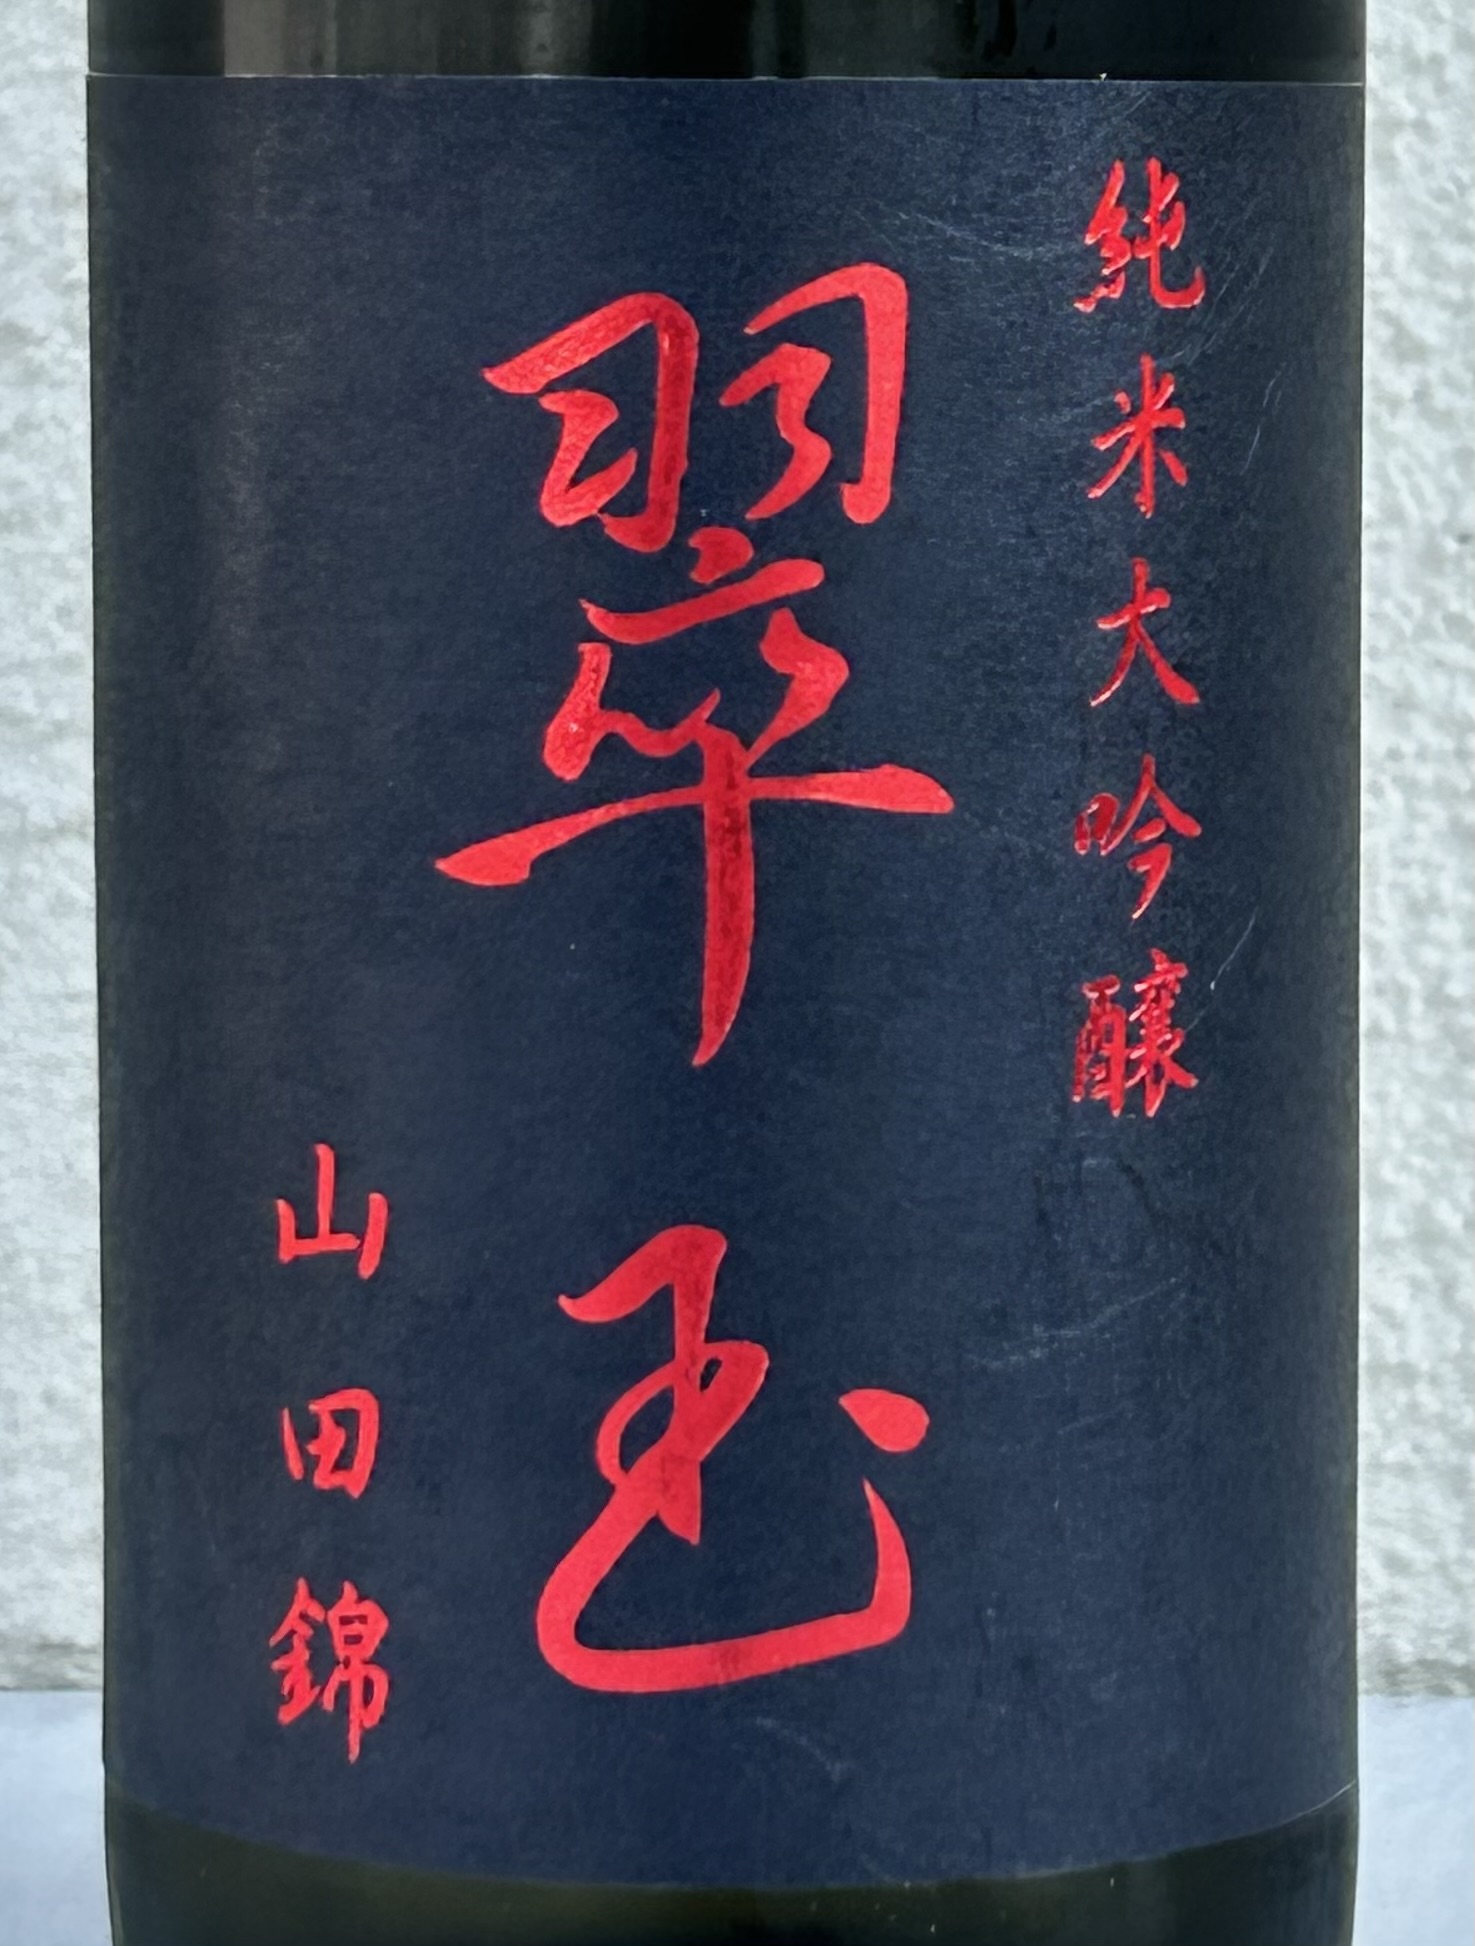 純米大吟醸
翠玉
山田錦